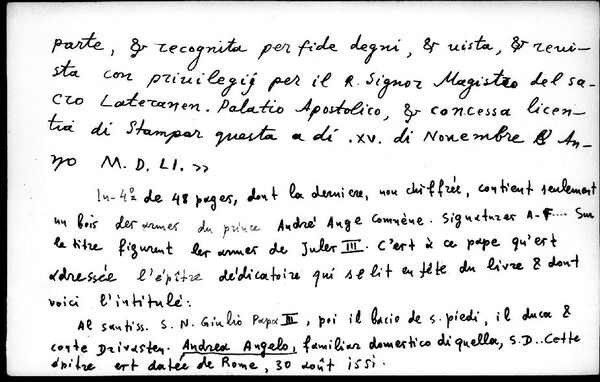 parte, & recognita per fide degni, & uista, & reui-
sta con priuilegij per il R. Signor Magistro del sa-
cro Lateranen. Palatio Apostolico, & concessa licen-
tia di Stampar questa a di .xv. di Novembre An-
no M. D. LI. »
In-4º de 48 pages, dont la derniere, non chiffrée, contient seulement
un bois des armes du prince André Ange Comnène. Signatures A-F.... Sur
le titre figurent les armes de Jules III. C'est à ce pape qu'est
adressée l'épître dédicatoire qui se lit en tête du livre & dont
voici l'intitulé:
Al santiss. S. N. Giulio Papa III, poi il bacio de s. piedi, il duca &
conte Drivasten. Andrea Angelo, familiar domestico di quella, S.D.. Cette
épître est datée de Rome, 30 août 1551.